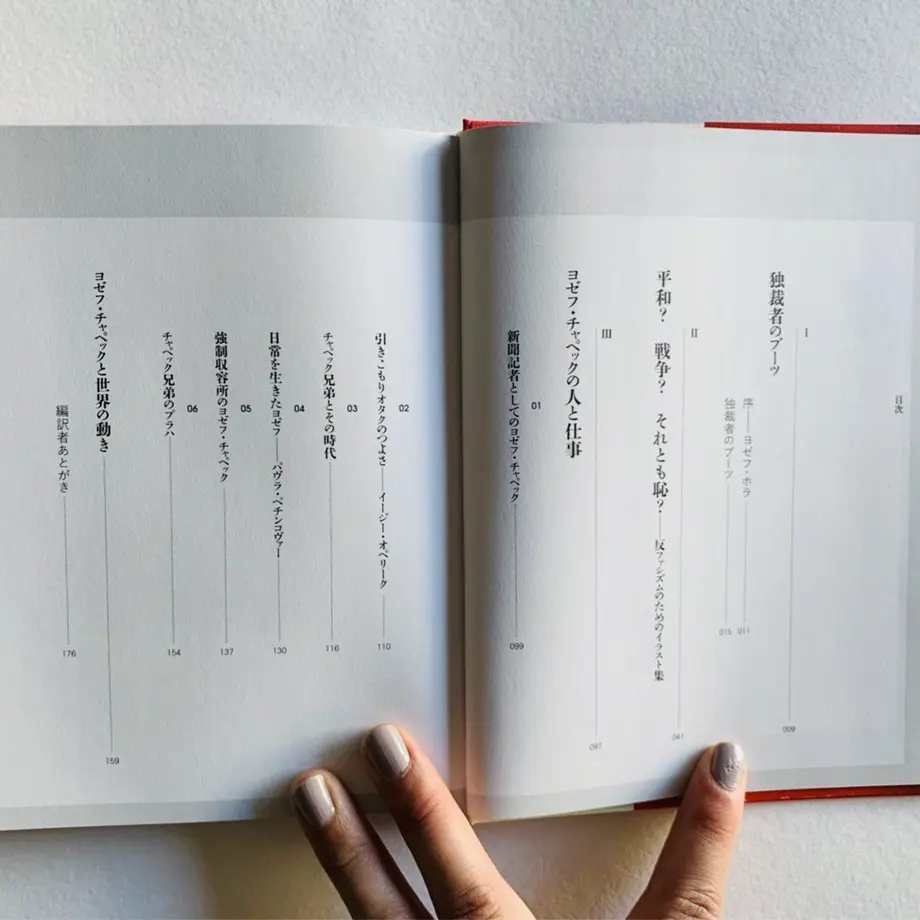 目次
I
独裁者のブーツ 009
序——ヨゼフ・ホラ 011
独裁者のブーツ 015
II
平和? 戦争? それとも恥?——反ファシズムのためのイラスト集 041
III
ヨゼフ・チャペックの人と仕事 097
01
新聞記者としてのヨゼフ・チャペック 099
02
引きこもりオタクのつよさ——イージー・オペリーク 110
03
チャペック兄弟とその時代 116
04
日常を生きたヨゼフ——パヴラ・ペチンコヴァー 130
05
強制収容所のヨゼフ・チャペック 137
06
チャペック兄弟のプラハ 154
ヨゼフ・チャペックと世界の動き 159
編訳者あとがき 176